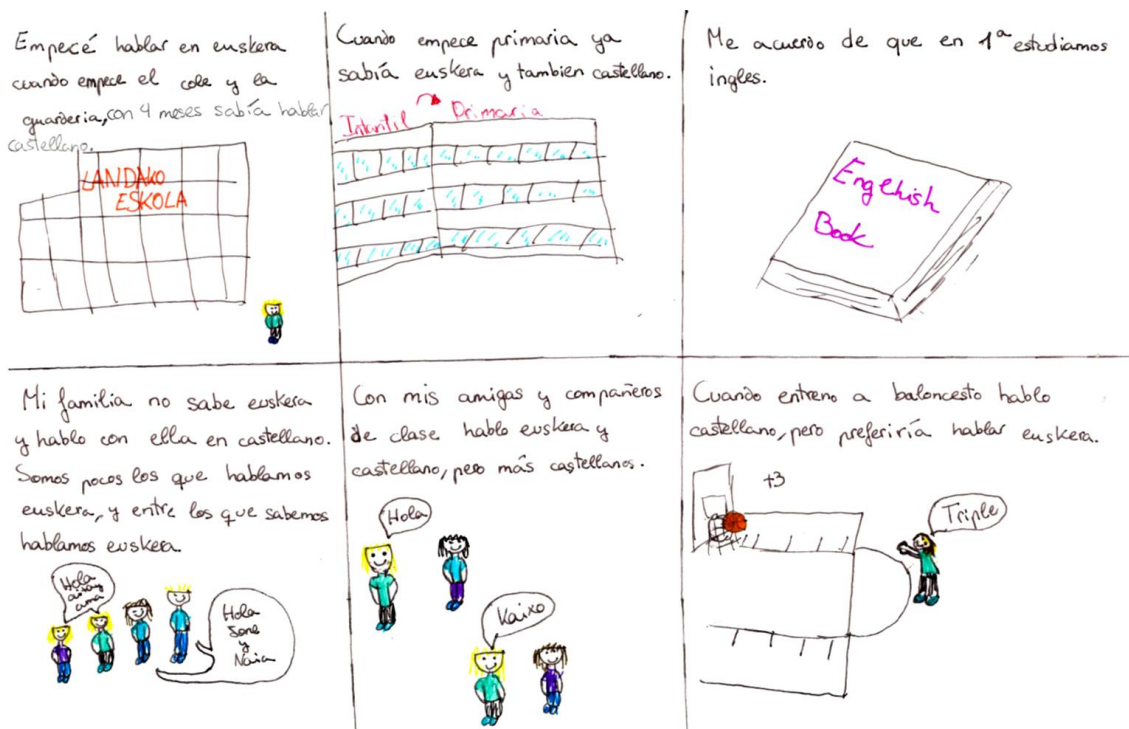 Empecé hablar en euskera
cuando empece el cole y la
guarderia, con 4 meses sabía hablar
castellano.
LANDAKO
ESKOLA
Cuando empece primaria ya
sabía euskera y tambien castellano.
Infantil Primaria
Me acuerdo de que en 1ª estudiamos
ingles.
Englehish
Book
Mi familia no sabe euskera
y hablo con ella en castellano.
Somos pocos los que hablamos
euskera, y entre los que sabemos
hablamos euskera.
Hola
ama
Hola
y
Naia
Con mis amigas y compañeros
de clase hablo euskera y
castellano, pero más castellanos.
Hola
Kaixo
Cuando entreno a baloncesto hablo
castellano, pero preferiría hablar euskera.
+3
Triple